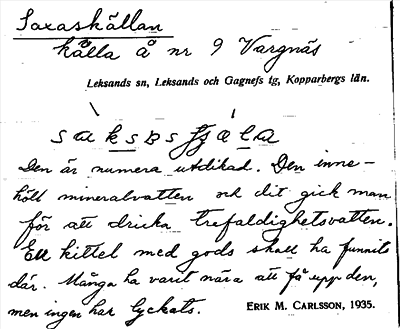 Saxaskällan
källa å nr 9 Vargnäs
Leksands sn, Leksands och Gagnefs tg, Kopparbergs län.
Den är numera utdikad. Den inne-
höll mineralvatten och dit gick man
för att dricka trefaldighetsvatten.
Ett kittel med gods skall ha funnits
där. Många ha varit nära att få upp den,
men ingen har lyckats.
ERIK M. CARLSSON, 1935.